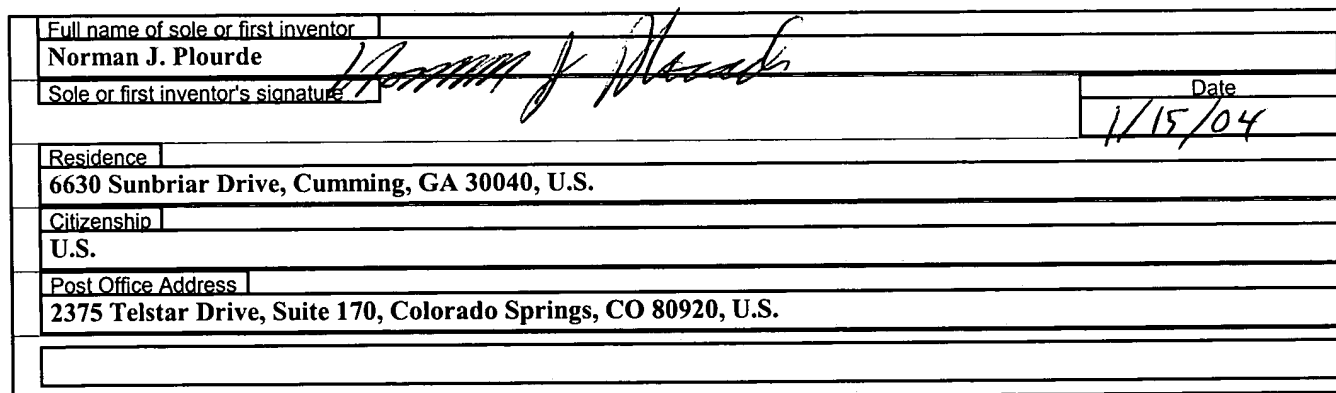 Full name of sole or first inventor
Norman J. Plourde
Norman J Plourde
Sole or first inventor's signature
Date
1/15/04
Residence
6630 Sunbriar Drive, Cumming, GA 30040, U.S.
Citizenship
U.S.
Post Office Address
2375 Telstar Drive, Suite 170, Colorado Springs, CO 80920, U.S.